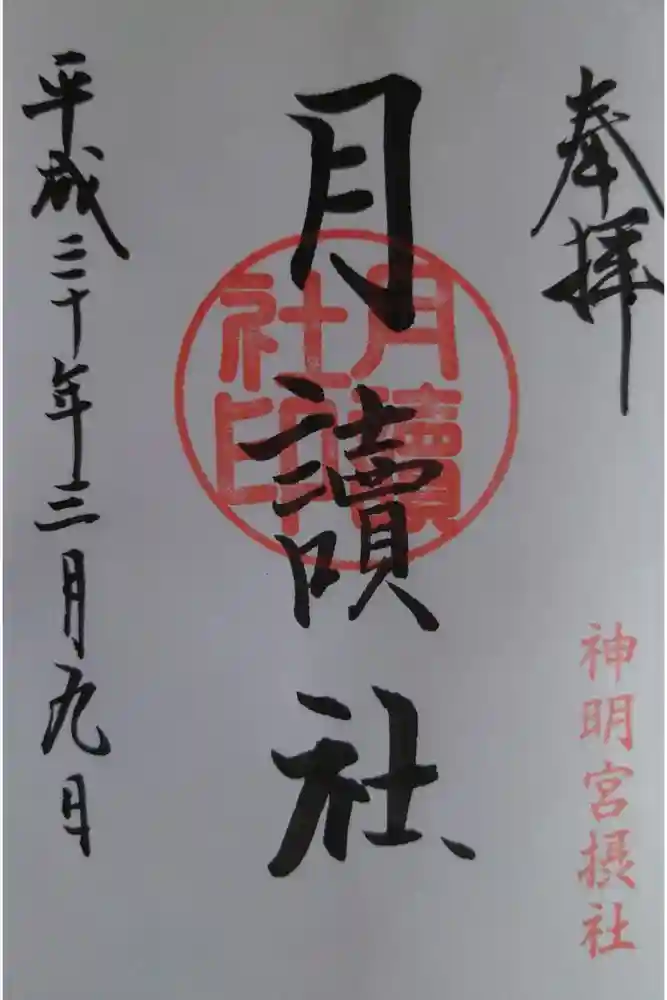 奉拝
神明宮摂社
月讀社
月讀
社印
平成三十年三月九日